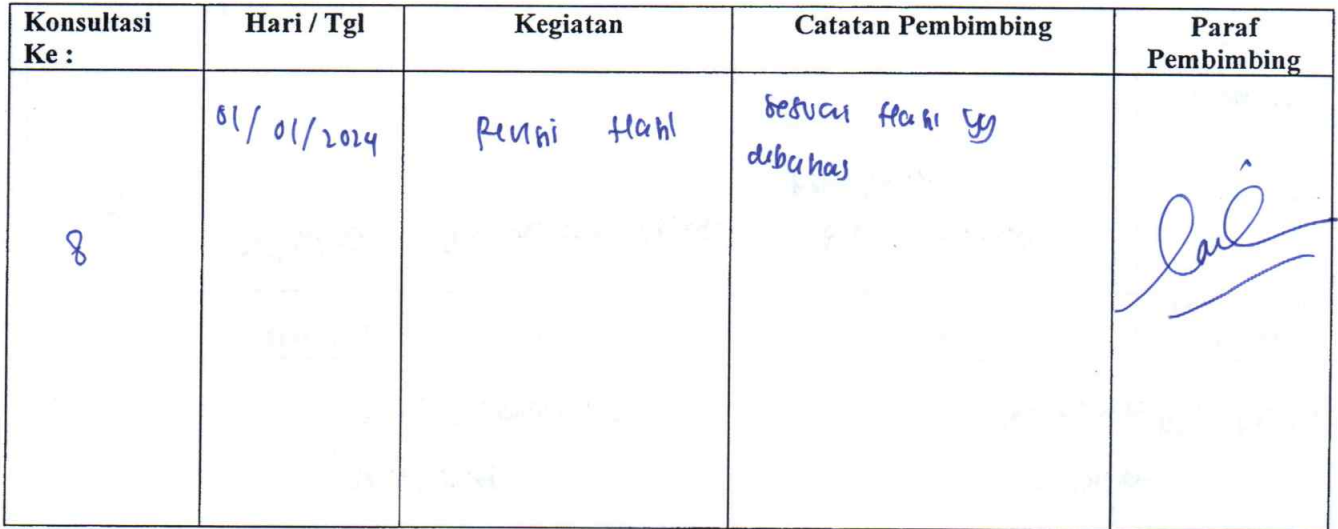 Konsultasi Ke :
Hari / Tgl
Kegiatan
Catatan Pembimbing
Paraf Pembimbing
8
01/01/2024
Revisi Hasil
sesuai Hasil yg
dibahas